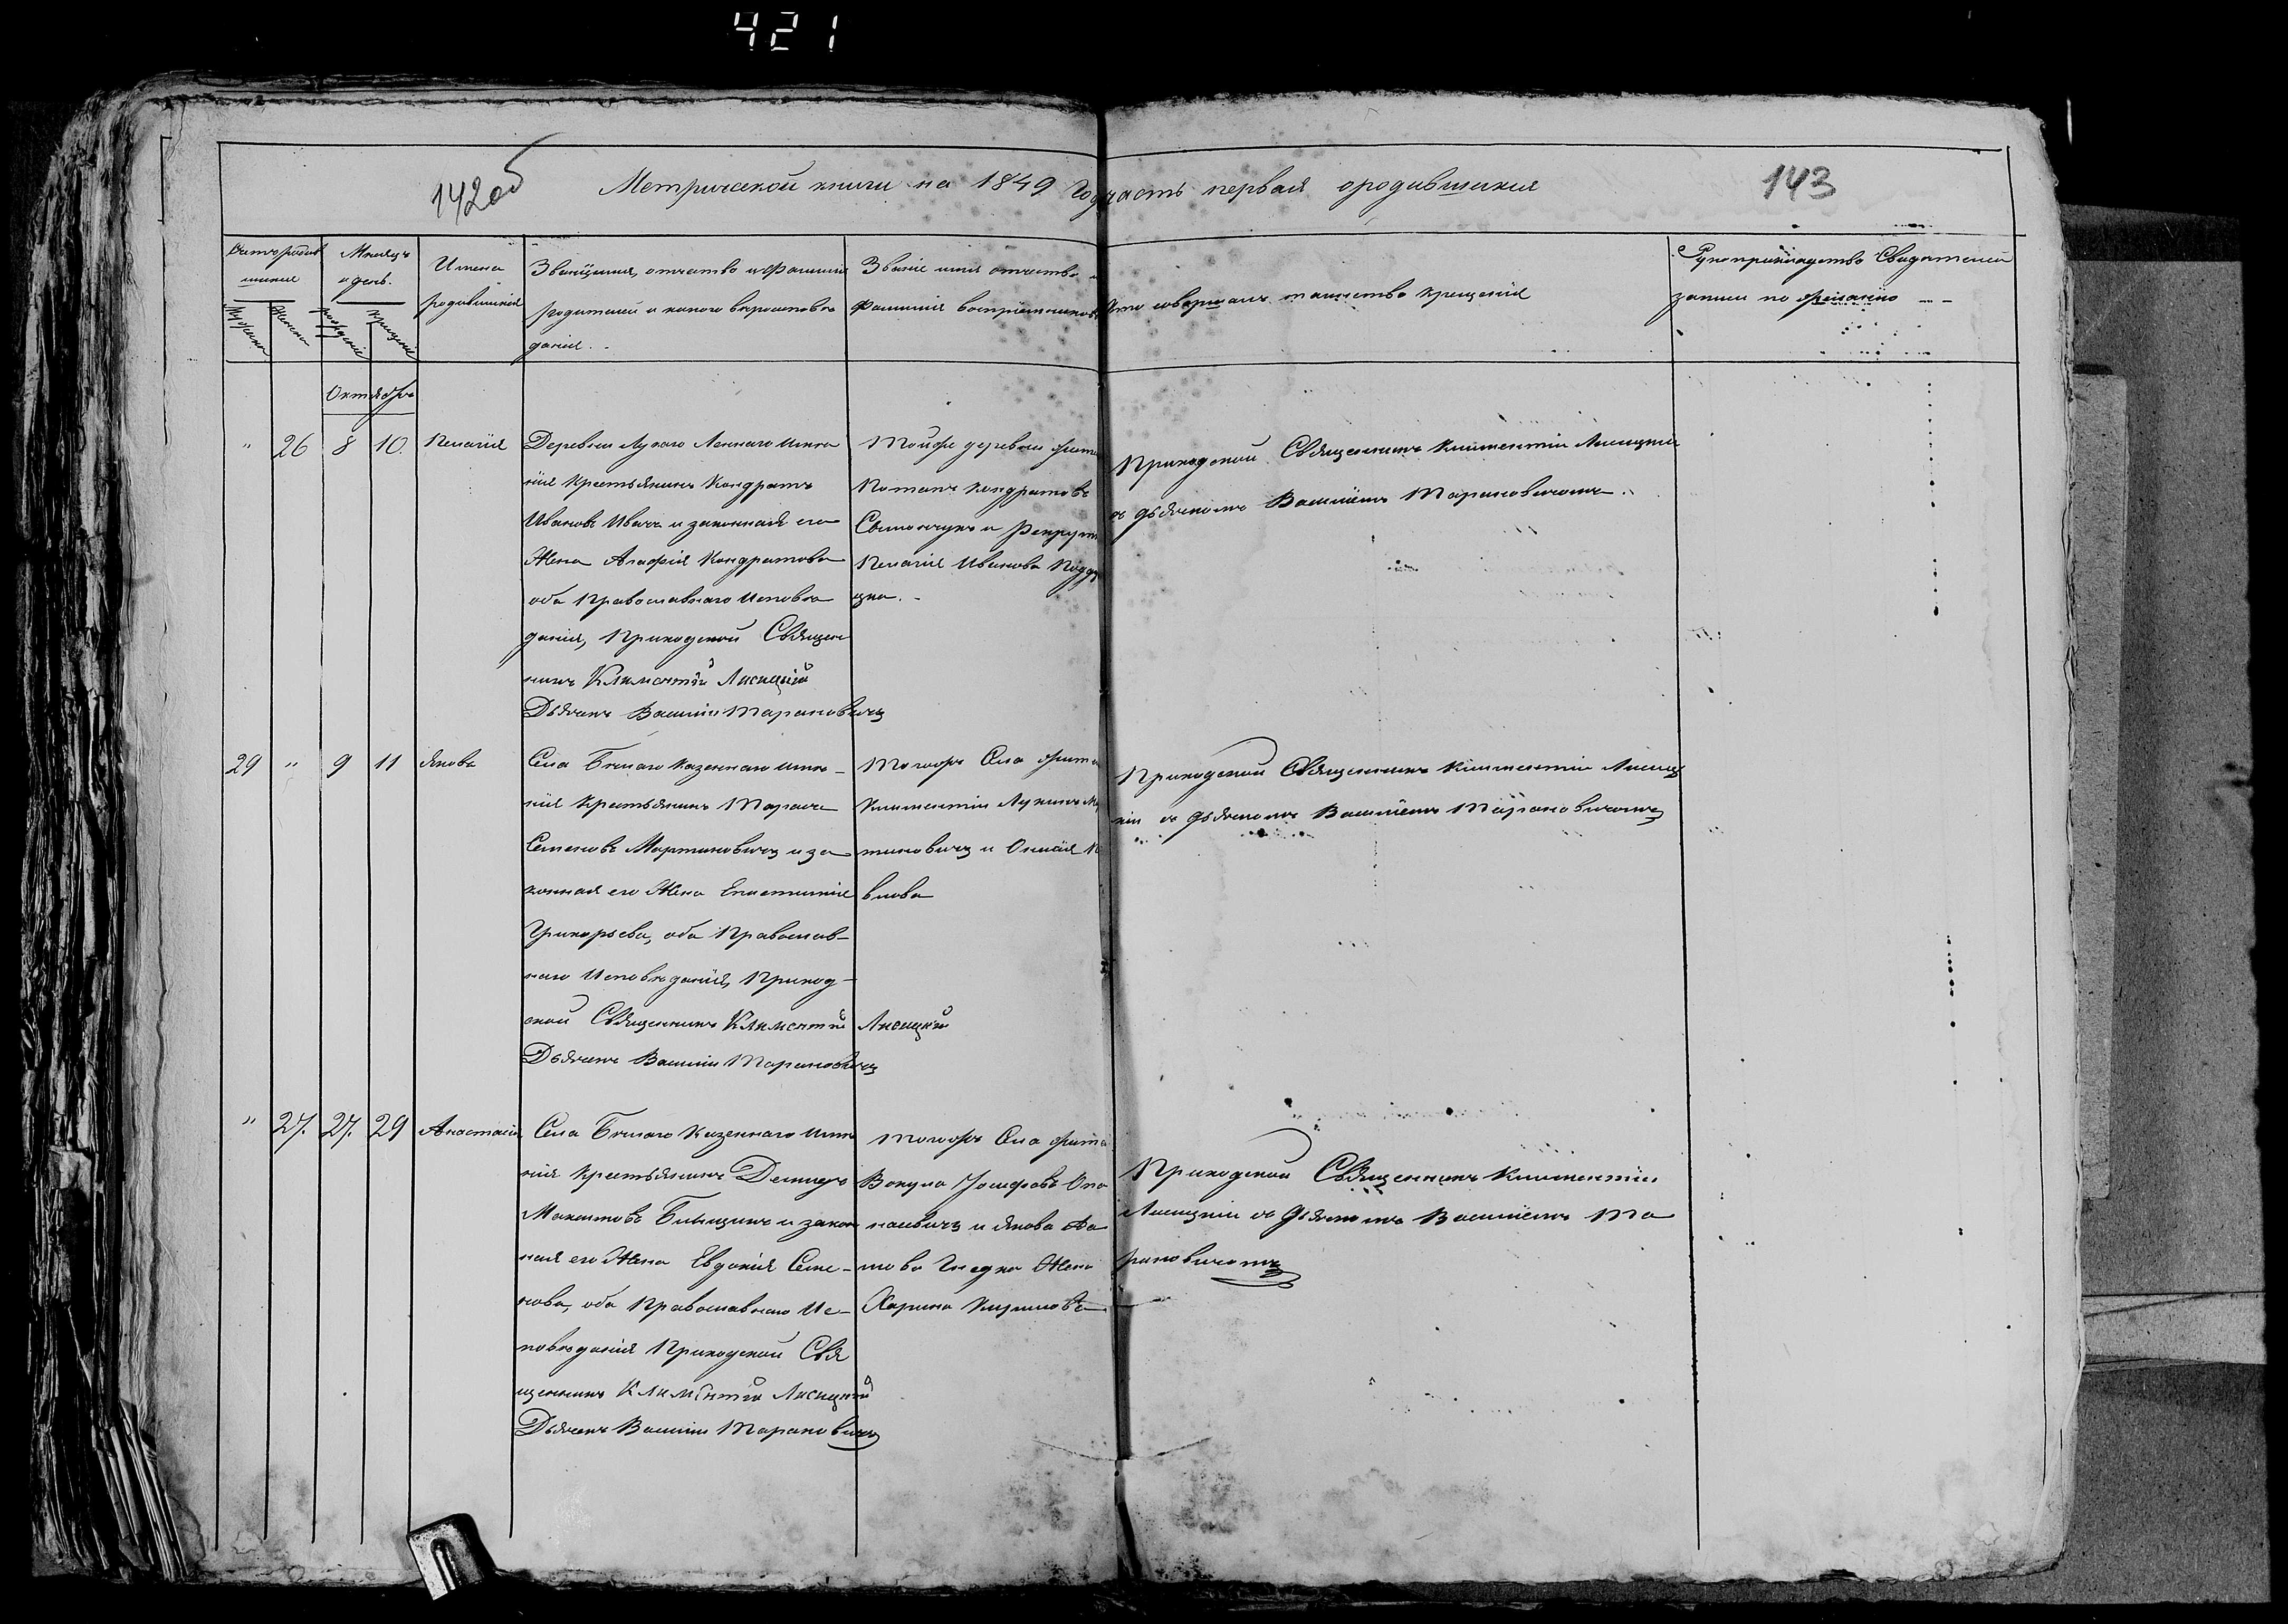 421
142об
Метрической книги на 1849 годъ часть первая о родившихся
143
Счетъ родив
шихся
Мѣсяцъ
и день.
Имена
родившихся
Званіе имя, отчество и фамилія
родителей и какого вѣроисповѣ
данія.
Званіе имя отчество и
фамилія воспріемниковъ
Кто совершалъ таинство крещенія
Рукоприкладство Свидѣтелей
записи по желанію
Мужеска
Женска
рожденія
крещенія
Октябрь
" 26 8 10. Пелагія
Деревни Лускаго Леннаго имѣ
нія Крестьянинъ Кондратъ
Ивановъ Ивач и законная его
Жена Агафія Кондратова
оба Православнаго Исповѣ
данія, Приходской Священ
никъ Климентій Лисицкій
Дьячекъ Василій Тарановичъ
Тойже деревни жит
Потапъ Кондратовъ
и рекрут
Пелагія Иванова
Приходской Священникъ Климентій Лисицкій
съ дьячкомъ Василіемъ Тарановичомъ.
29 " 9 11 Яковъ
Села Бѣлаго Казеннаго имѣ-
нія Крестьянинъ Тарасъ
Семеновъ Мартиновичъ и за
конная его Жена Епистимія
Григорьева, оба Православ-
наго Исповѣданія, Приход-
ской Священникъ Климентій Лисицкій
Дьячекъ Василій Тарановичъ
Тогожъ Села жите
Климентій Лукинъ Ма
тиновичъ и
влова
Приходской Священникъ Климентій Лисиц
кій съ дьячкомъ Василіемъ Тарановичомъ
" 27. 27. 29 Анастасія
Села Бѣлаго Казеннаго имѣ
нія Крестьянинъ Демидъ
Максимовъ и закон
ная его Жена Евдокія Семе-
нова, оба Православнаго Ис-
повѣданія Приходской Свя
щенникъ Климентій Лисицкій
Дьячекъ Василій Тарановичъ
Тогожъ Села жите
Вакула Іосифовъ Опа
насевичъ и Якова
Жена
Харина Кирилова
Приходской Священникъ Климентій
Лисицкій съ дьячкомъ Василіемъ Та
рановичомъ